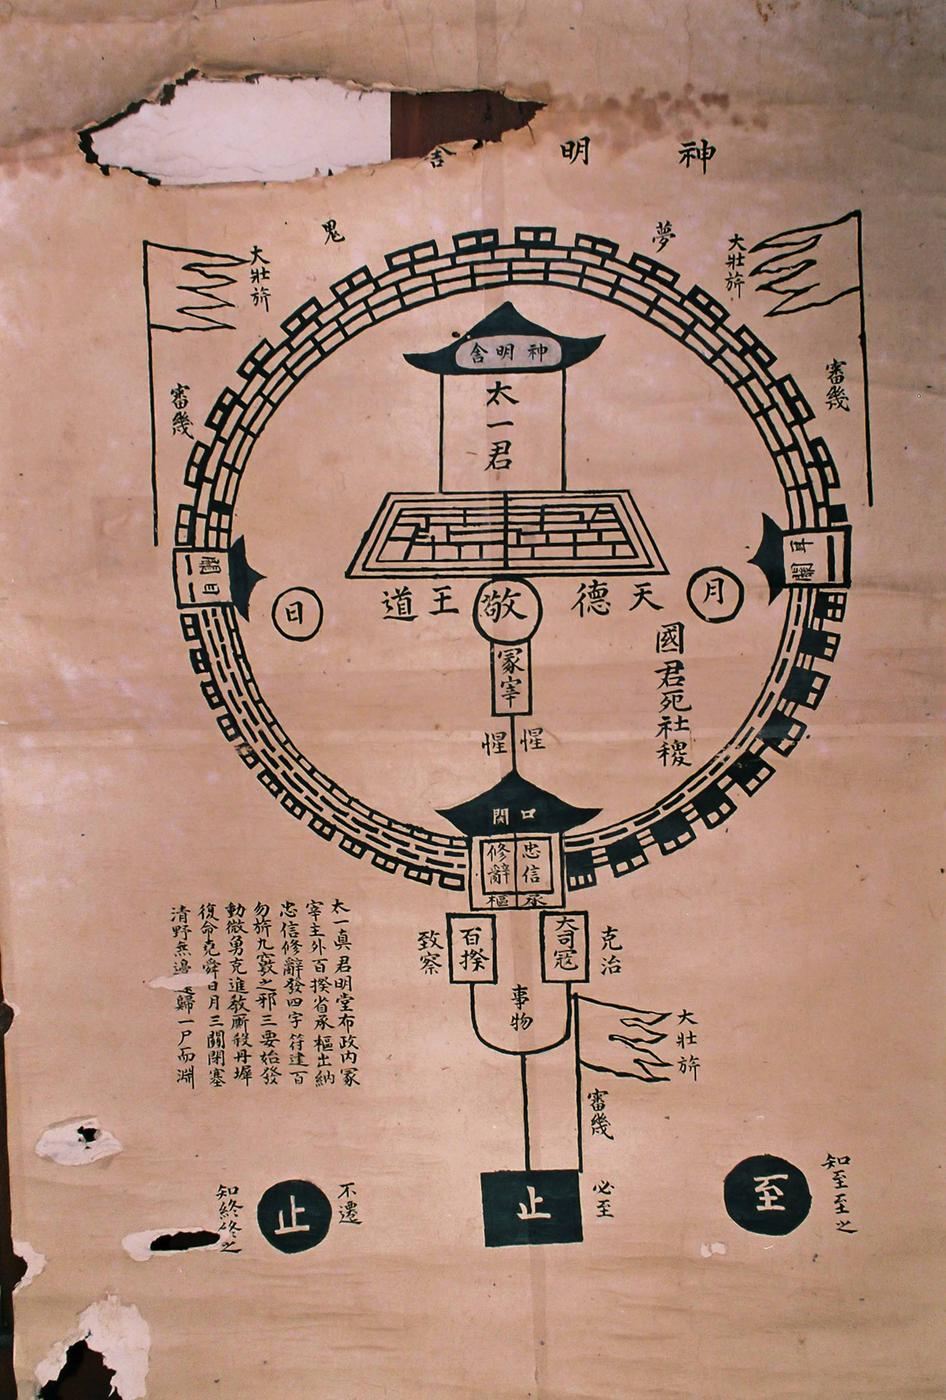 神明舍
夢
鬼
大壯旂
大壯旂
審幾
審幾
神明舍
太一君
耳關
目關
月
日
天德
敬
王道
國君死社稷
冢宰
惺惺
口關
忠信
修辭
承樞
大司寇
百揆
克治
致察
事物
大壯旂
審幾
太一真君明堂布政内冢
宰主外百揆省承樞出納
忠信修辭發四字符建百
勿旂九竅之邪三要始發
動微勇克進教廝殺丹墀
復命堯舜日月三關閉塞
清野無邊歸一尸而淵
知至至之
至
必至
止
不遷
止
知終終之